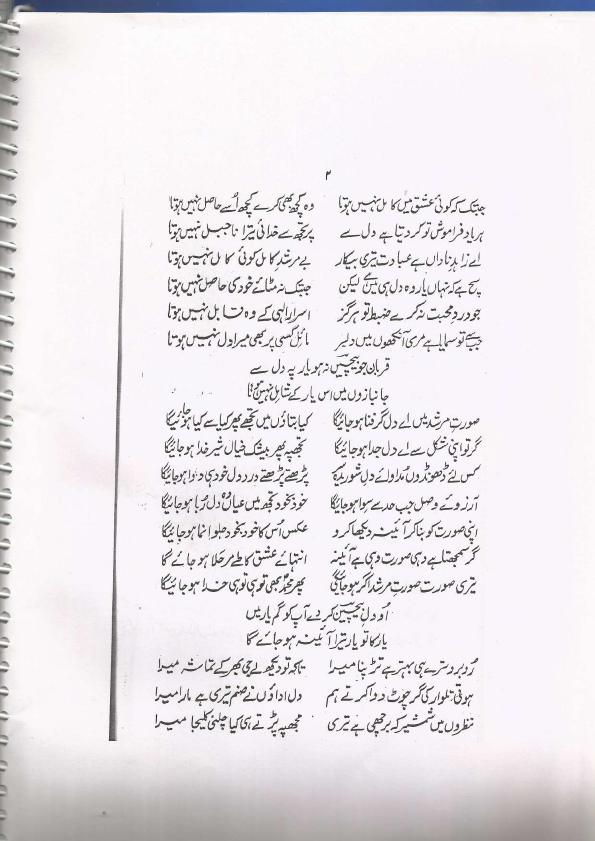 ۲
جبتک کہ کوئی عشق میں کامل نہیں ہوتا وہ کچھ بھی کرے کچھ اُسے حاصل نہیں ہوتا
ہر یاد فراموش تو کر دیتا ہے دل سے پر تجھ سے خدائی تیرا نا جبل نہیں ہوتا
اے زاہدِ ناداں ہے عبادت تیری بیکار بے مرشدِ کامل کوئی کامل نہیں ہوتا
سچ ہے کہ نہاں یار وہ دل ہی میں لیکن جبتک نہ مٹائے خودی حاصل نہیں ہوتا
جو دردِ محبت نہ کرے ضبط تو ہرگز اسرارِ الٰہی کے وہ قابل نہیں ہوتا
جب سے تو سمایا ہے مری آنکھوں میں دلبر مائل کسی پر بھی میرا دل نہیں ہوتا
قربان جو بیچیں نہ ہو یار پہ دل سے
جانبازوں میں اس یار کے شامل نہیں ہوتا
صورتِ مرشد میں اے دل گر فنا ہو جائیگا کیا بتاؤں میں تجھے پھر کیا سے کیا ہو جائیگا
گر تو اپنی شکل سے اے دل جدا ہو جائیگا تجھپہ پھر بیشک خیال شیر خدا ہو جائیگا
کس لئے ڈھونڈوں مداوائے دلِ شوریدہ پڑھتے پڑھتے درد دل خود ہی دوا ہو جائیگا
آرزوئے وصل جب حد سے سوا ہو جائیگا خود بخود تجھ میں عیاں وہ دل رُبا ہو جائیگا
اپنی صورت کو بنا کر آئینہ دیکھا کرو عکس اُس کا خود بخود جلوا نما ہو جائیگا
گر سمجھتا ہے وہی صورت وہی ہے آئینہ انتہائے عشق کا طے مرحلا ہو جائے گا
تیری صورت صورتِ مرشد اگر ہو جائیگی پھر محمدؐ بھی تو ہی تو ہی خدا ہو جائیگا
او دلِ بیچیں کر دے آپ کو گم یار میں
یار کا تو یار تیرا آئینہ ہو جائے گا
رُوبرو ترے ہی بہتر ہے تڑپنا میرا تاکہ تو دیکھ لے جی بھر کے تماشہ میرا
ہوتی تلوار کی گر چوٹ دوا کرتے ہم دل اداؤں نے صنم تیری ہے مارا میرا
نظروں میں شمشیر کہ برچھی ہے تیری مجھپہ پڑتے ہی کیا چھلنی کلیجا میرا